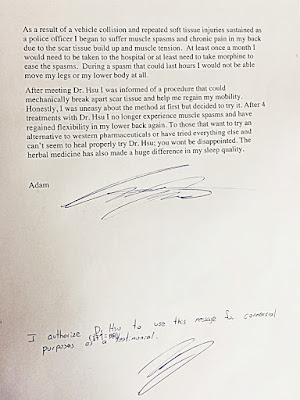 As a result of a vehicle collision and repeated soft tissue injuries sustained as
a police officer I began to suffer muscle spasms and chronic pain in my back
due to the scar tissue build up and muscle tension. At least once a month I
would need to be taken to the hospital or at least need to take morphine to
ease the spasms. During a spasm that could last hours I would not be able
move my legs or my lower body at all.
After meeting Dr. Hsu I was informed of a procedure that could
mechanically break apart scar tissue and help me regain my mobility.
Honestly, I was uneasy about the method at first but decided to try it. After 4
treatments with Dr. Hsu I no longer experience muscle spasms and have
regained flexibility in my lower back again. To those that want to try an
alternative to western pharmaceuticals or have tried everything else and
can't seem to heal properly try Dr. Hsu; you wont be disappointed. The
herbal medicine has also made a huge difference in my sleep quality.
Adam
I authorize Dr Hsu to use this message for commercial
purposes as a testimonial.